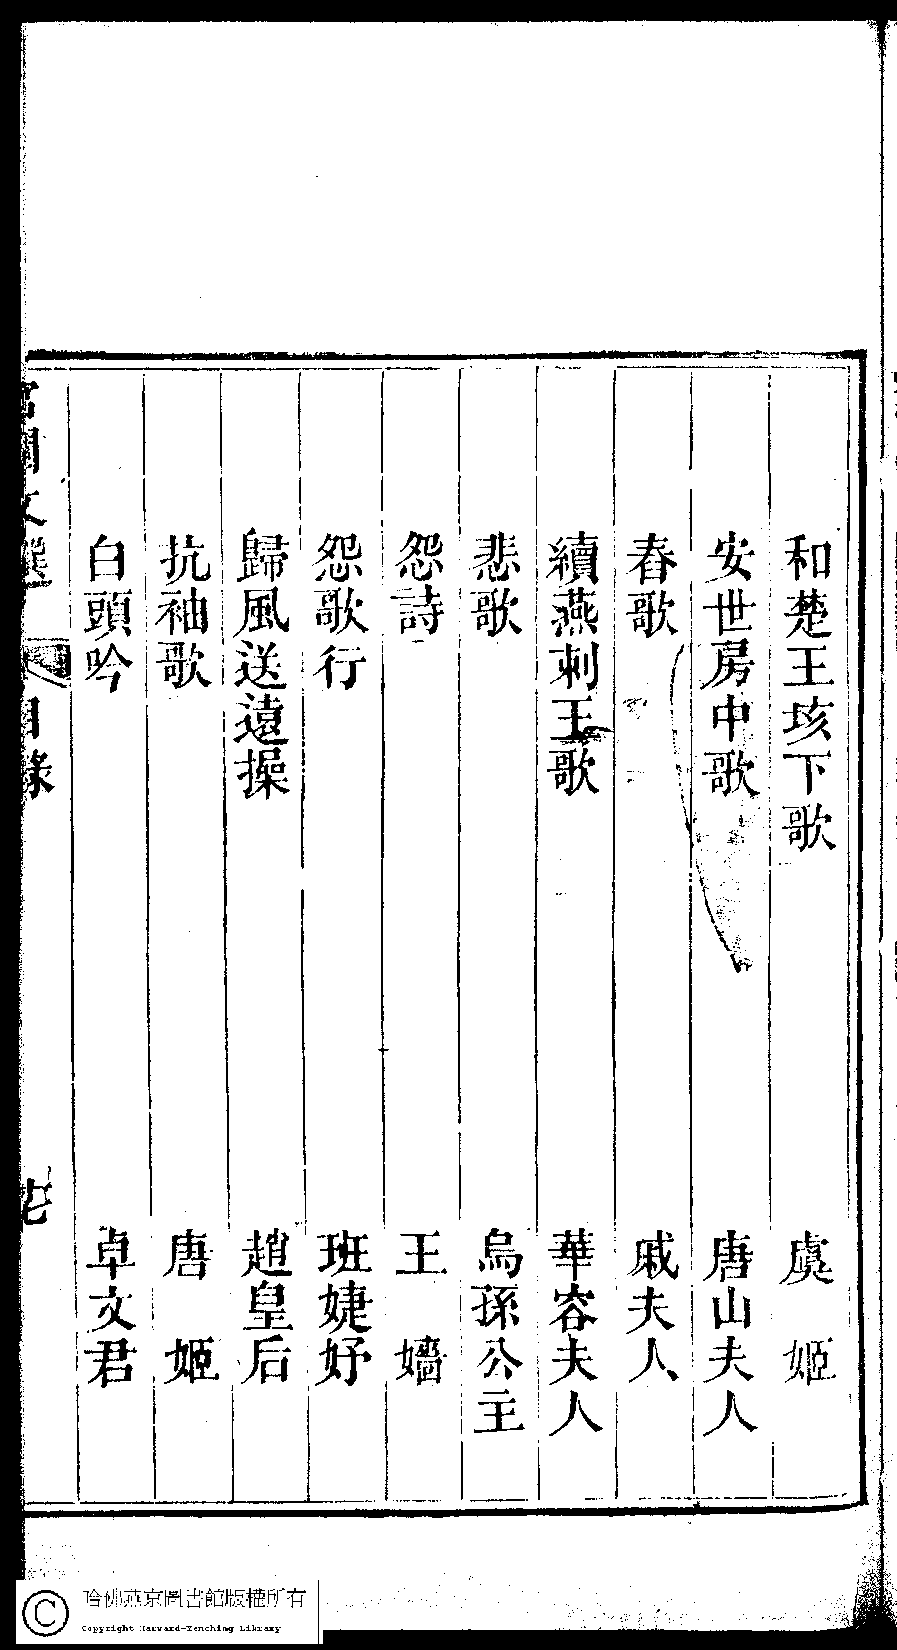 和楚王垓下歌 虞姬
安世房中歌 唐山夫人
舂歌 戚夫人
續燕刺王歌 華容夫人
悲歌 烏孫公主
怨詩 王嬙
怨歌行 班婕妤
歸風送遠操 趙皇后
抗袖歌 唐姬
白頭吟 卓文君
宮閨文選 目錄
哈佛燕京圖書館版權所有
Copyright Harvard-Yenching Library